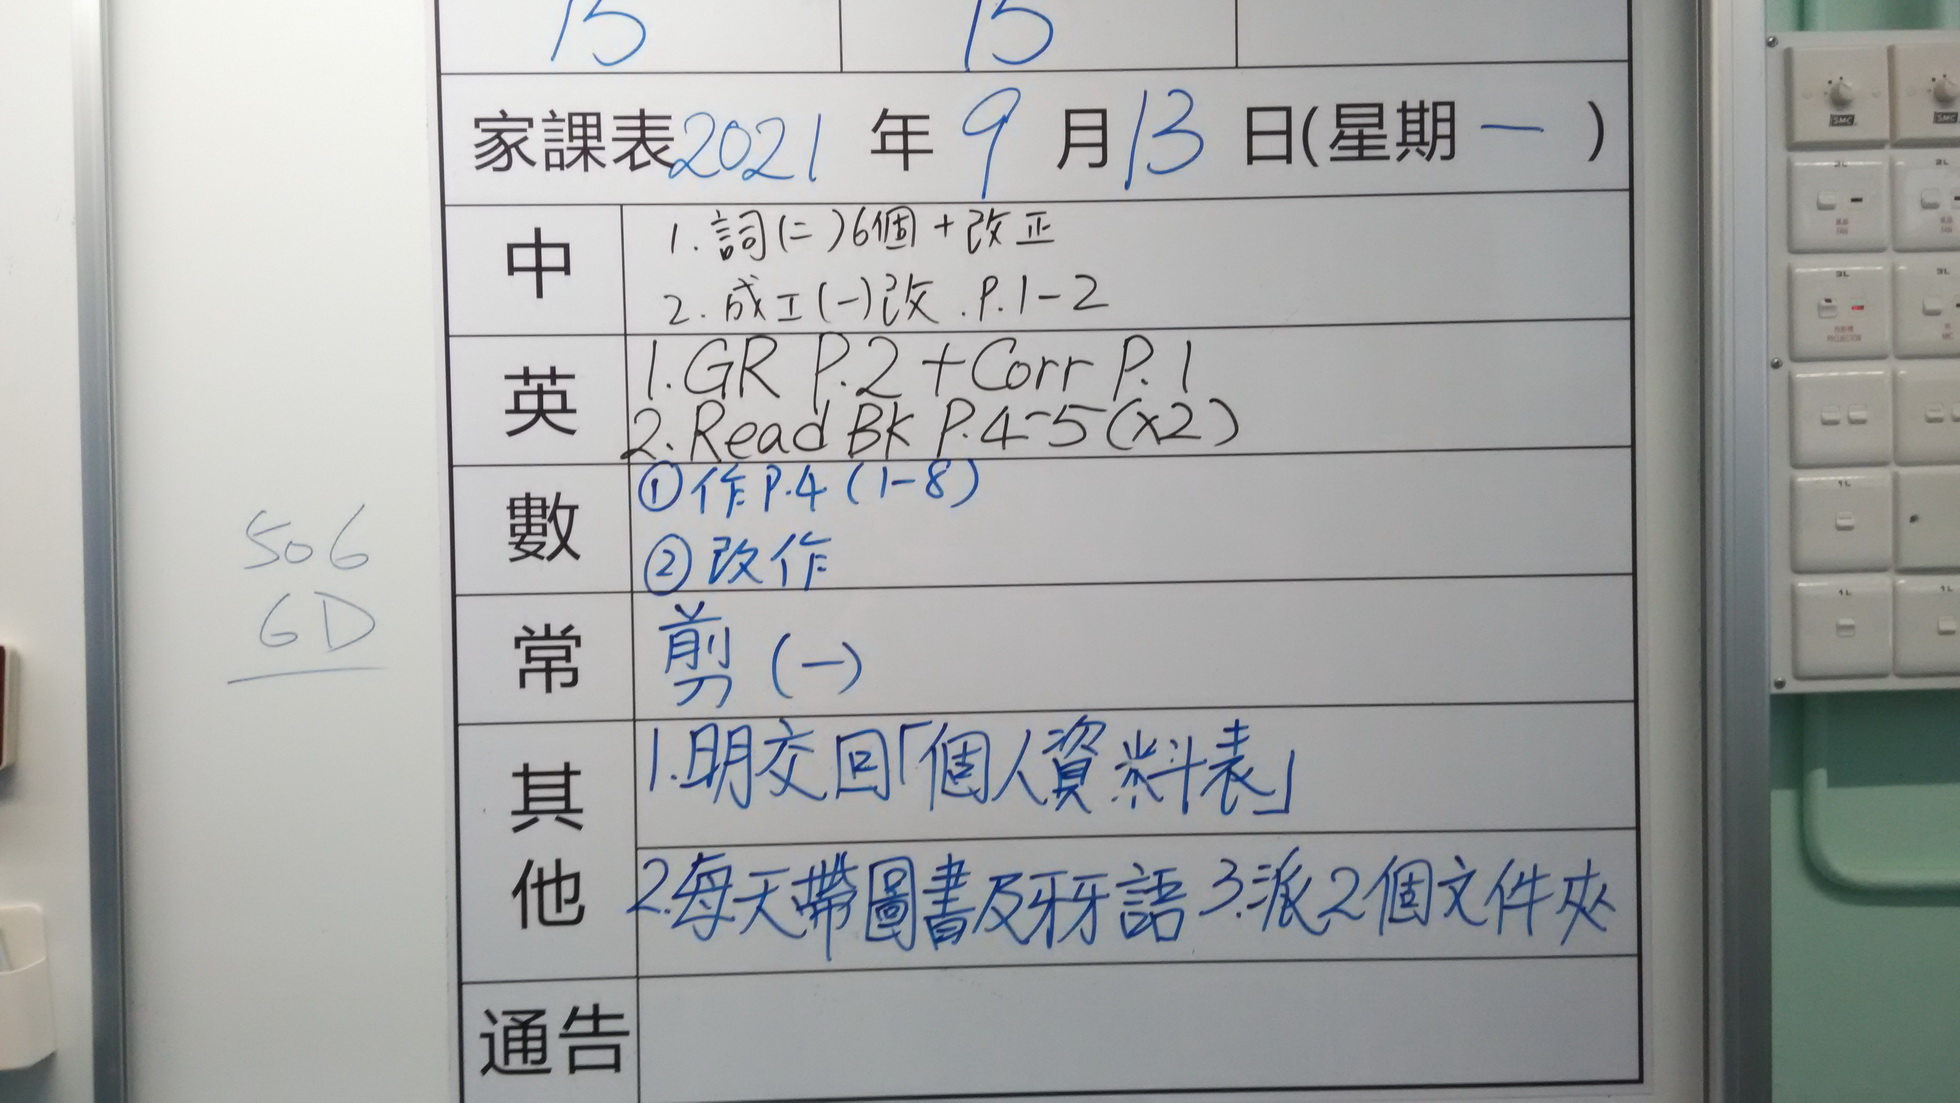 15 15
家課表2021 年 9 月 13 日(星期 一 )
中
1. 詞(二)6個+改正
2. 成工(一)改 .P.1-2
英
1. GR P.2 + Corr P.1
2. Read Bk P.4-5(x2)
數
①作P.4 (1-8)
②改作
常
剪 (一)
其他
1.明交回「個人資料表」
2.每天帶圖書及牙牙語 3.派2個文件夾
通告
506
6D
SMC
SMC
3L
2L
3L
3L
1L
1L
1L
1L